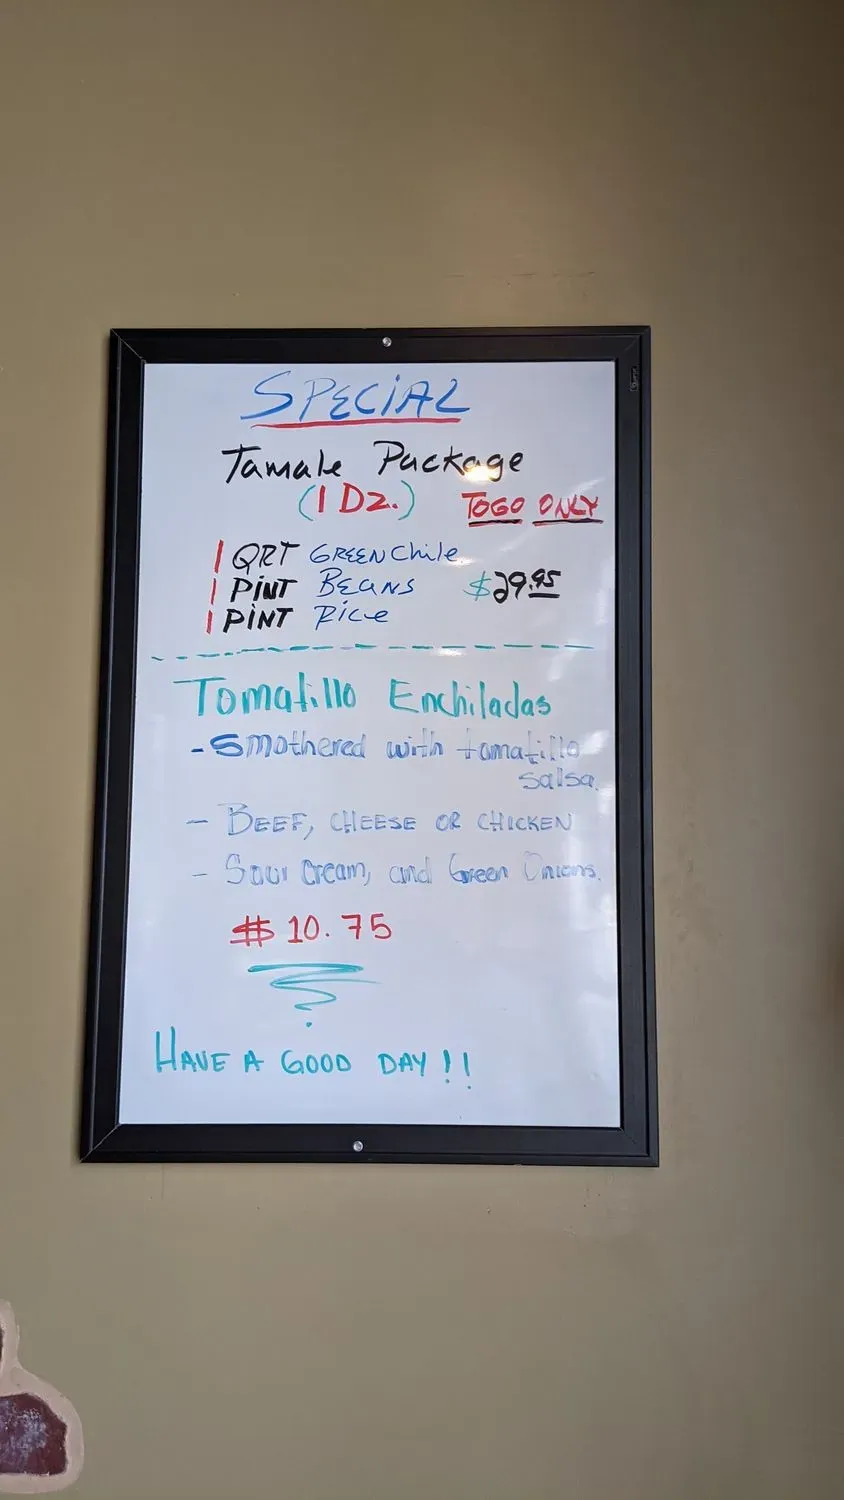 SPECIAL
Tamale Package
(1 DZ.) TOGO ONLY
1 QRT GREEN Chile
1 PINT BEANS $29.95
1 PINT Rice
Tomatillo Enchiladas
- Smothered with tomatillo
salsa.
- BEEF, CHEESE OR CHICKEN
- Sour Cream, and Green Onions.
$ 10.75
HAVE A GOOD DAY!!